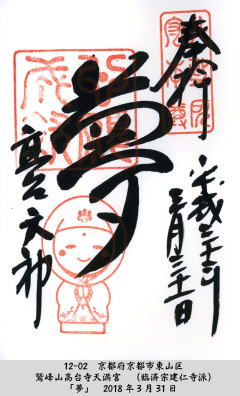 奉拝
夢
高台天神
平成三十年
三月三十一日
12-02 京都府京都市東山区
鷲峰山高台寺天満宮 （臨済宗建仁寺派）
「夢」 2018年3月31日